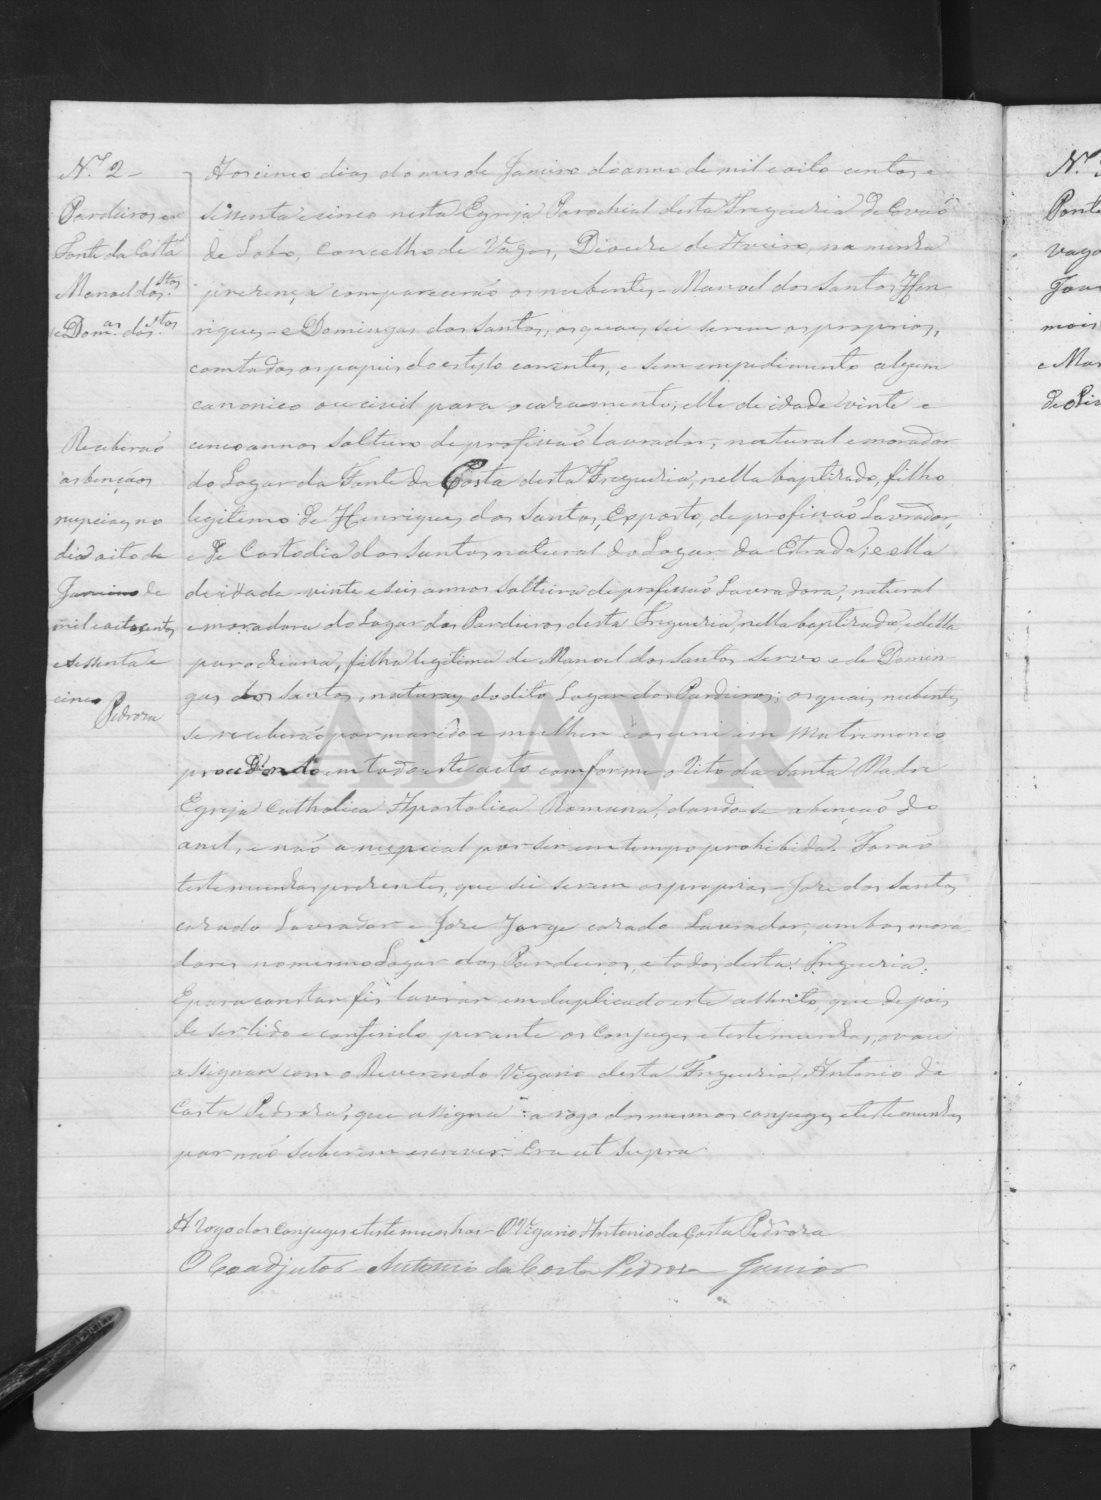 N.º 2 -
Pardeiros e
Fonte da Costa
Manoel dos S.tos
e Dom.as dos S.tos
Receberaõ
as bençaõs
nupciaes no
dia oito de
Janeiro de
mil e oitocentos
e sessenta e
cinco Pedroza
Aos cinco dias do mes de Janeiro do anno de mil e oito centos e
sessenta e cinco nesta Egreja Parochial desta Freguezia de Covaõ
de Lobo, Concelho de Vagos, Diocese de Aveiro, na minha
prezença compareceraõ os nubentes - Manoel dos Santos Hen
riques - e Domingas dos Santos, os quaes sei serem os proprios,
com todos os papeis do estylo correntes, e sem impedimento algum
canonico ou civil para o cazamento; elle de idade vinte e
cinco annos solteiro de profissaõ lavrador, natural e morador
do Lugar da Fonte da Costa desta Freguezia, nella baptizado, filho
legitimo de Henriques dos Santos, Exposto, de profissaõ Lavrador,
e de Custodia dos Santos natural do Lugar da Estrada; e ella
de idade vinte e seis annos solteira de profissaõ Lavradora, natural
e moradora do Lugar dos Pardeiros desta Freguezia, nella baptizada, e della
parochiana, filha legitima de Manoel dos Santos Servo e de Domin
gas dos Santos, naturaes do dito Lugar dos Pardeiros; os quaes nubentes
se receberaõ por marido e mulher e os uni em Matrimonio
procedendo em todo este acto comforme o Rito da Santa Madre
Egreja Catholica Apostolica Romana, dando-se a bençaõ do
anel, e naõ a nupcial por ser em tempo prohibido. Foraõ
testemunhas prezentes, que sei serem os proprios - Joze dos Santos
cazado Lavrador e Joze Jorge cazado Lavrador, ambos mora
dores no mesmo Lugar dos Pardeiros, e todos desta Freguezia.
E para constar fis lavrar em duplicado este assento, que depois
de ser lido e conferido perante os conjuges e testemunhas, o vou
assignar com o Reverendo Vigario desta Freguezia, Antonio da
Costa Pedroza, que assigna a rogo dos mesmos conjuges e testemunhas
por naõ saberem escrever. Era ut supra
A rogo dos conjuges e testemunhas - O Vigario Antonio da Costa Pedroza
O Coadjutor Antonio da Costa Pedroza Junior
ADAVR
N.º
Ponte
vago
Joaõ
e Ma